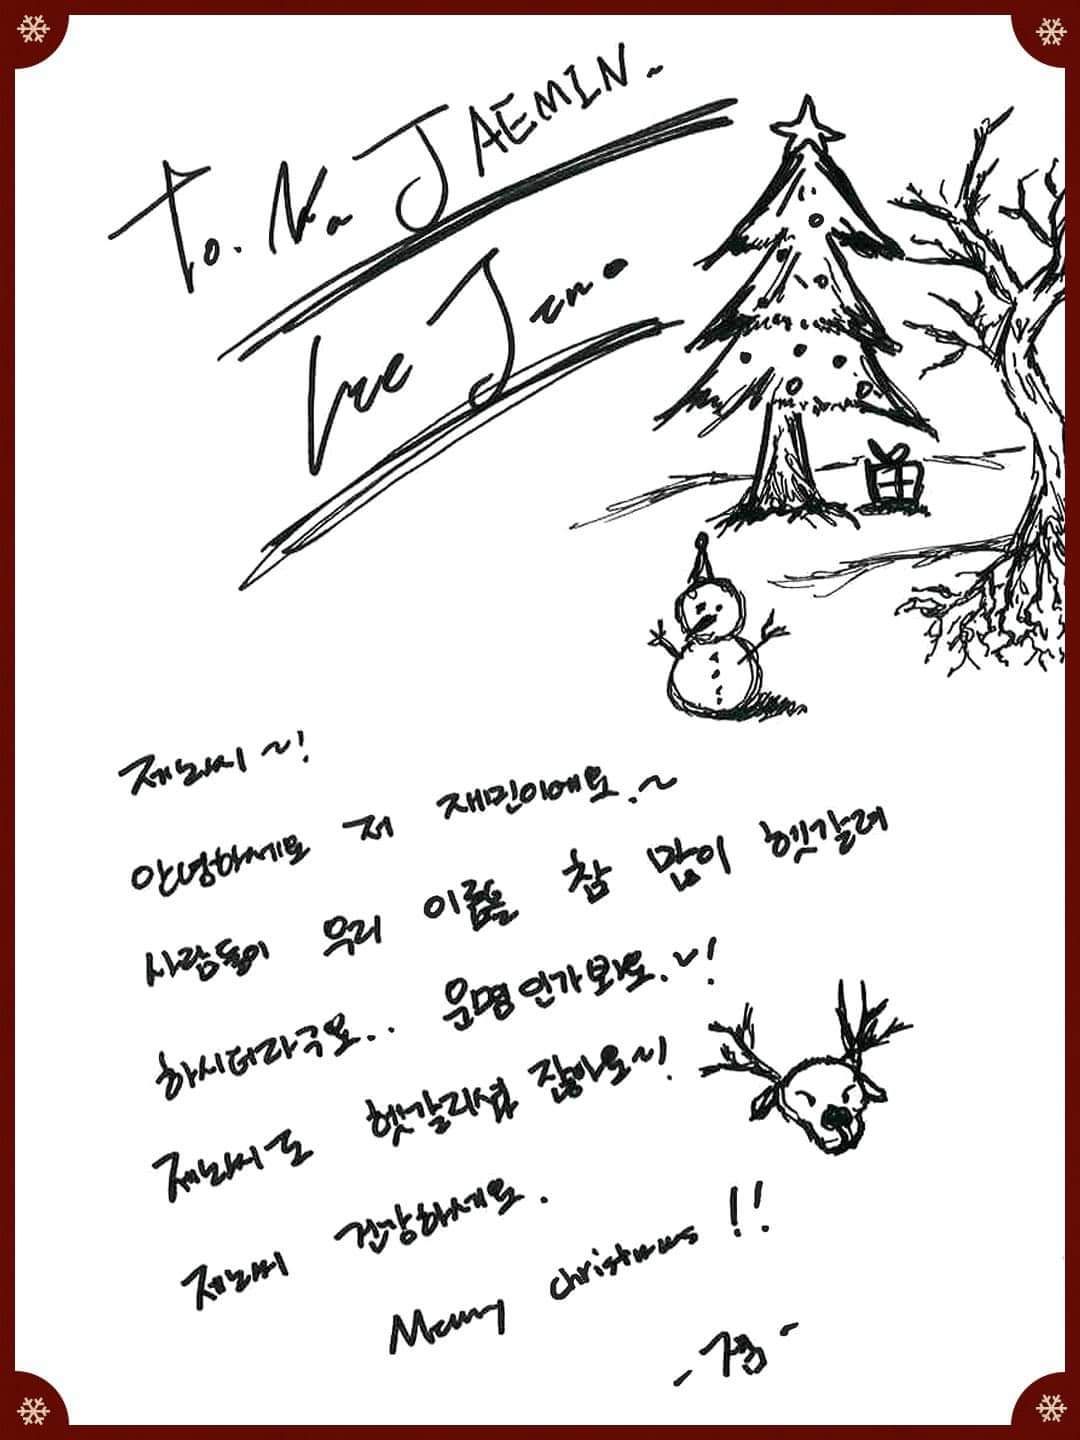 To. Na JAEMIN~
Lee Jeno
제노씨~!
안녕하세요 저 재민이에요.~
사람들이 우리 이름을 참 많이 헷갈려
하시더라구요.. 운명인가봐요.~!
제노씨도 헷갈리셨 잖아요~!
제노씨 건강하세요.
Merry christmas !!